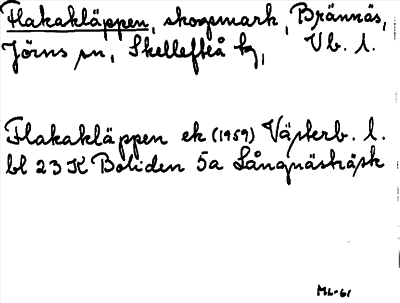 Flakakläppen, skogsmark, Brännäs,
Jörns sn, Skellefteå kg, Vb. l.
Flakakläppen ek (1959) Västerb. l.
bl 23 K Boliden 5a Långnästräsk
ML-61